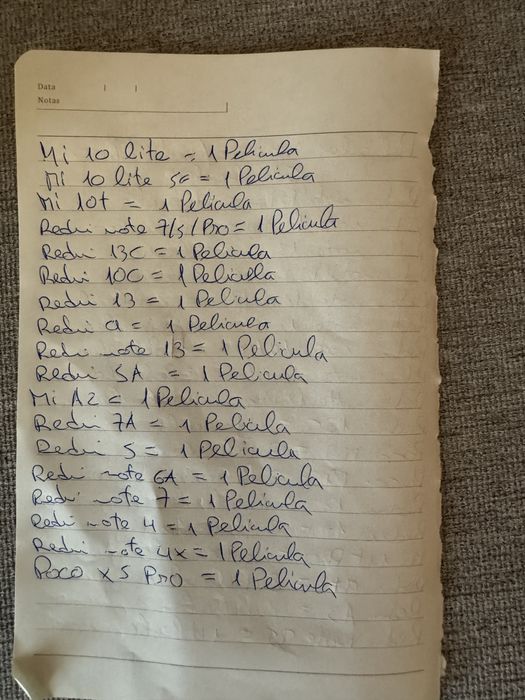 Data
Notas
Mi 10 lite = 1 Pelicula
Mi 10 lite 5G = 1 Pelicula
Mi 10t = 1 Pelicula
Redmi note 7/S/Pro = 1 Pelicula
Redmi 13C = 1 Pelicula
Redmi 10C = 1 Pelicula
Redmi 13 = 1 Pelicula
Redmi 9 = 1 Pelicula
Redmi note 13 = 1 Pelicula
Redmi 5A = 1 Pelicula
Mi A2 = 1 Pelicula
Redmi 7A = 1 Pelicula
Redmi 5 = 1 Pelicula
Redmi note 6A = 1 Pelicula
Redmi note 7 = 1 Pelicula
Redmi note 4 = 1 Pelicula
Redmi note 4x = 1 Pelicula
Poco X5 Pro = 1 Pelicula